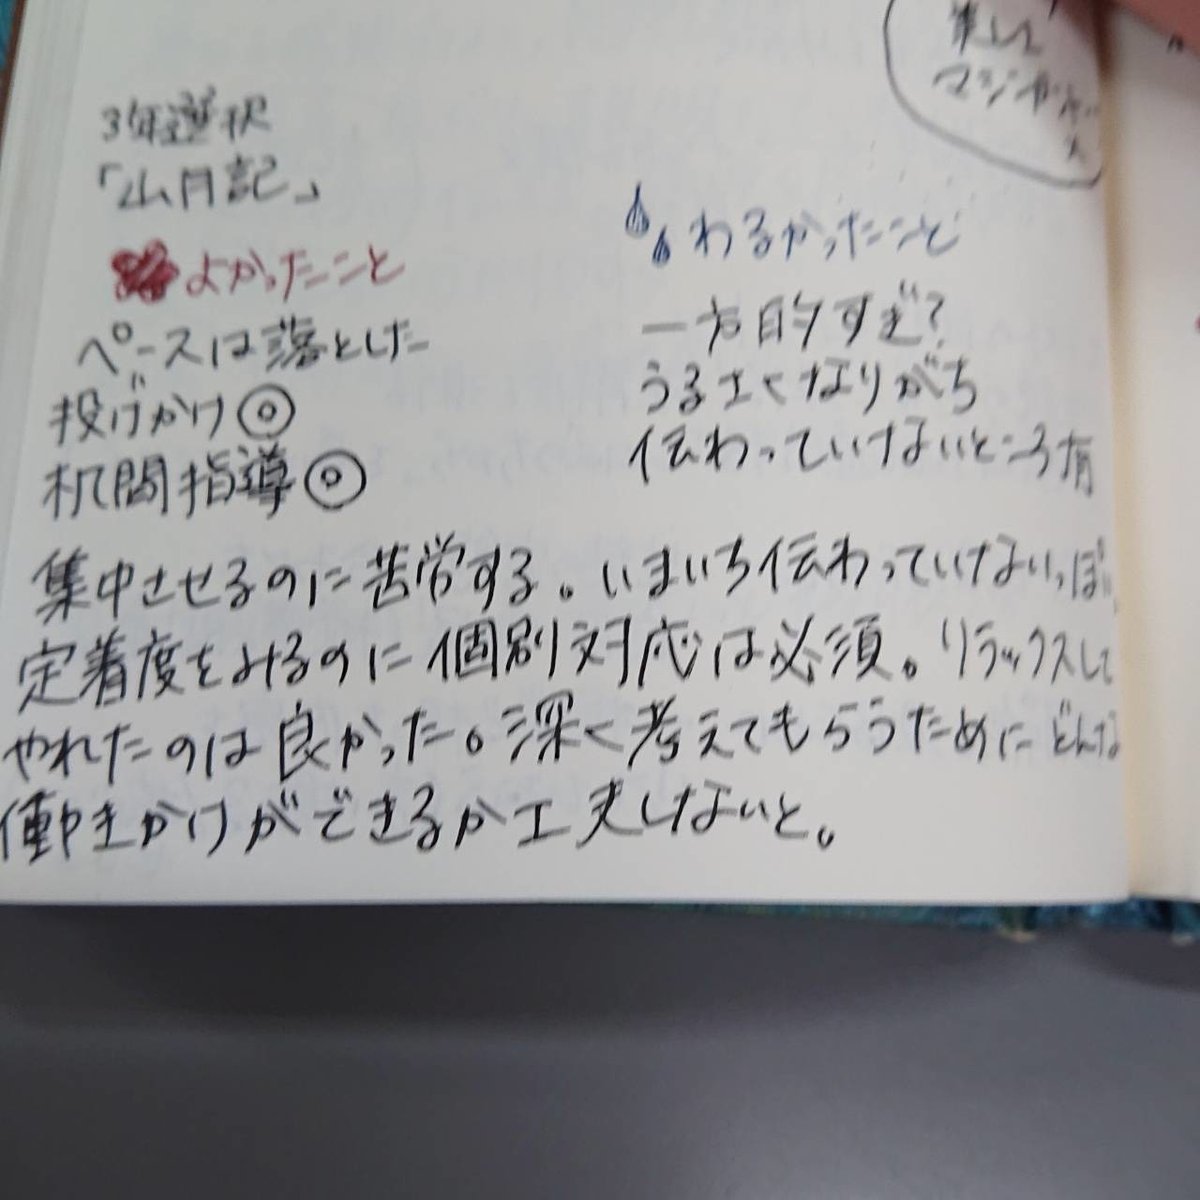 3年選択
「山月記」
よかったこと
ペースは落とした
投げかけ◎
机間指導◎
わるかったこと
一方的すぎ?
うるさくなりがち
伝わっていけないところ有
集中させるのに苦労する。いまいち伝わっていけないっぽい
定着度をみるのに個別対応は必須。リラックスして
やれたのは良かった。深く考えてもらうためにどんな
働きかけができるか工夫しないと。